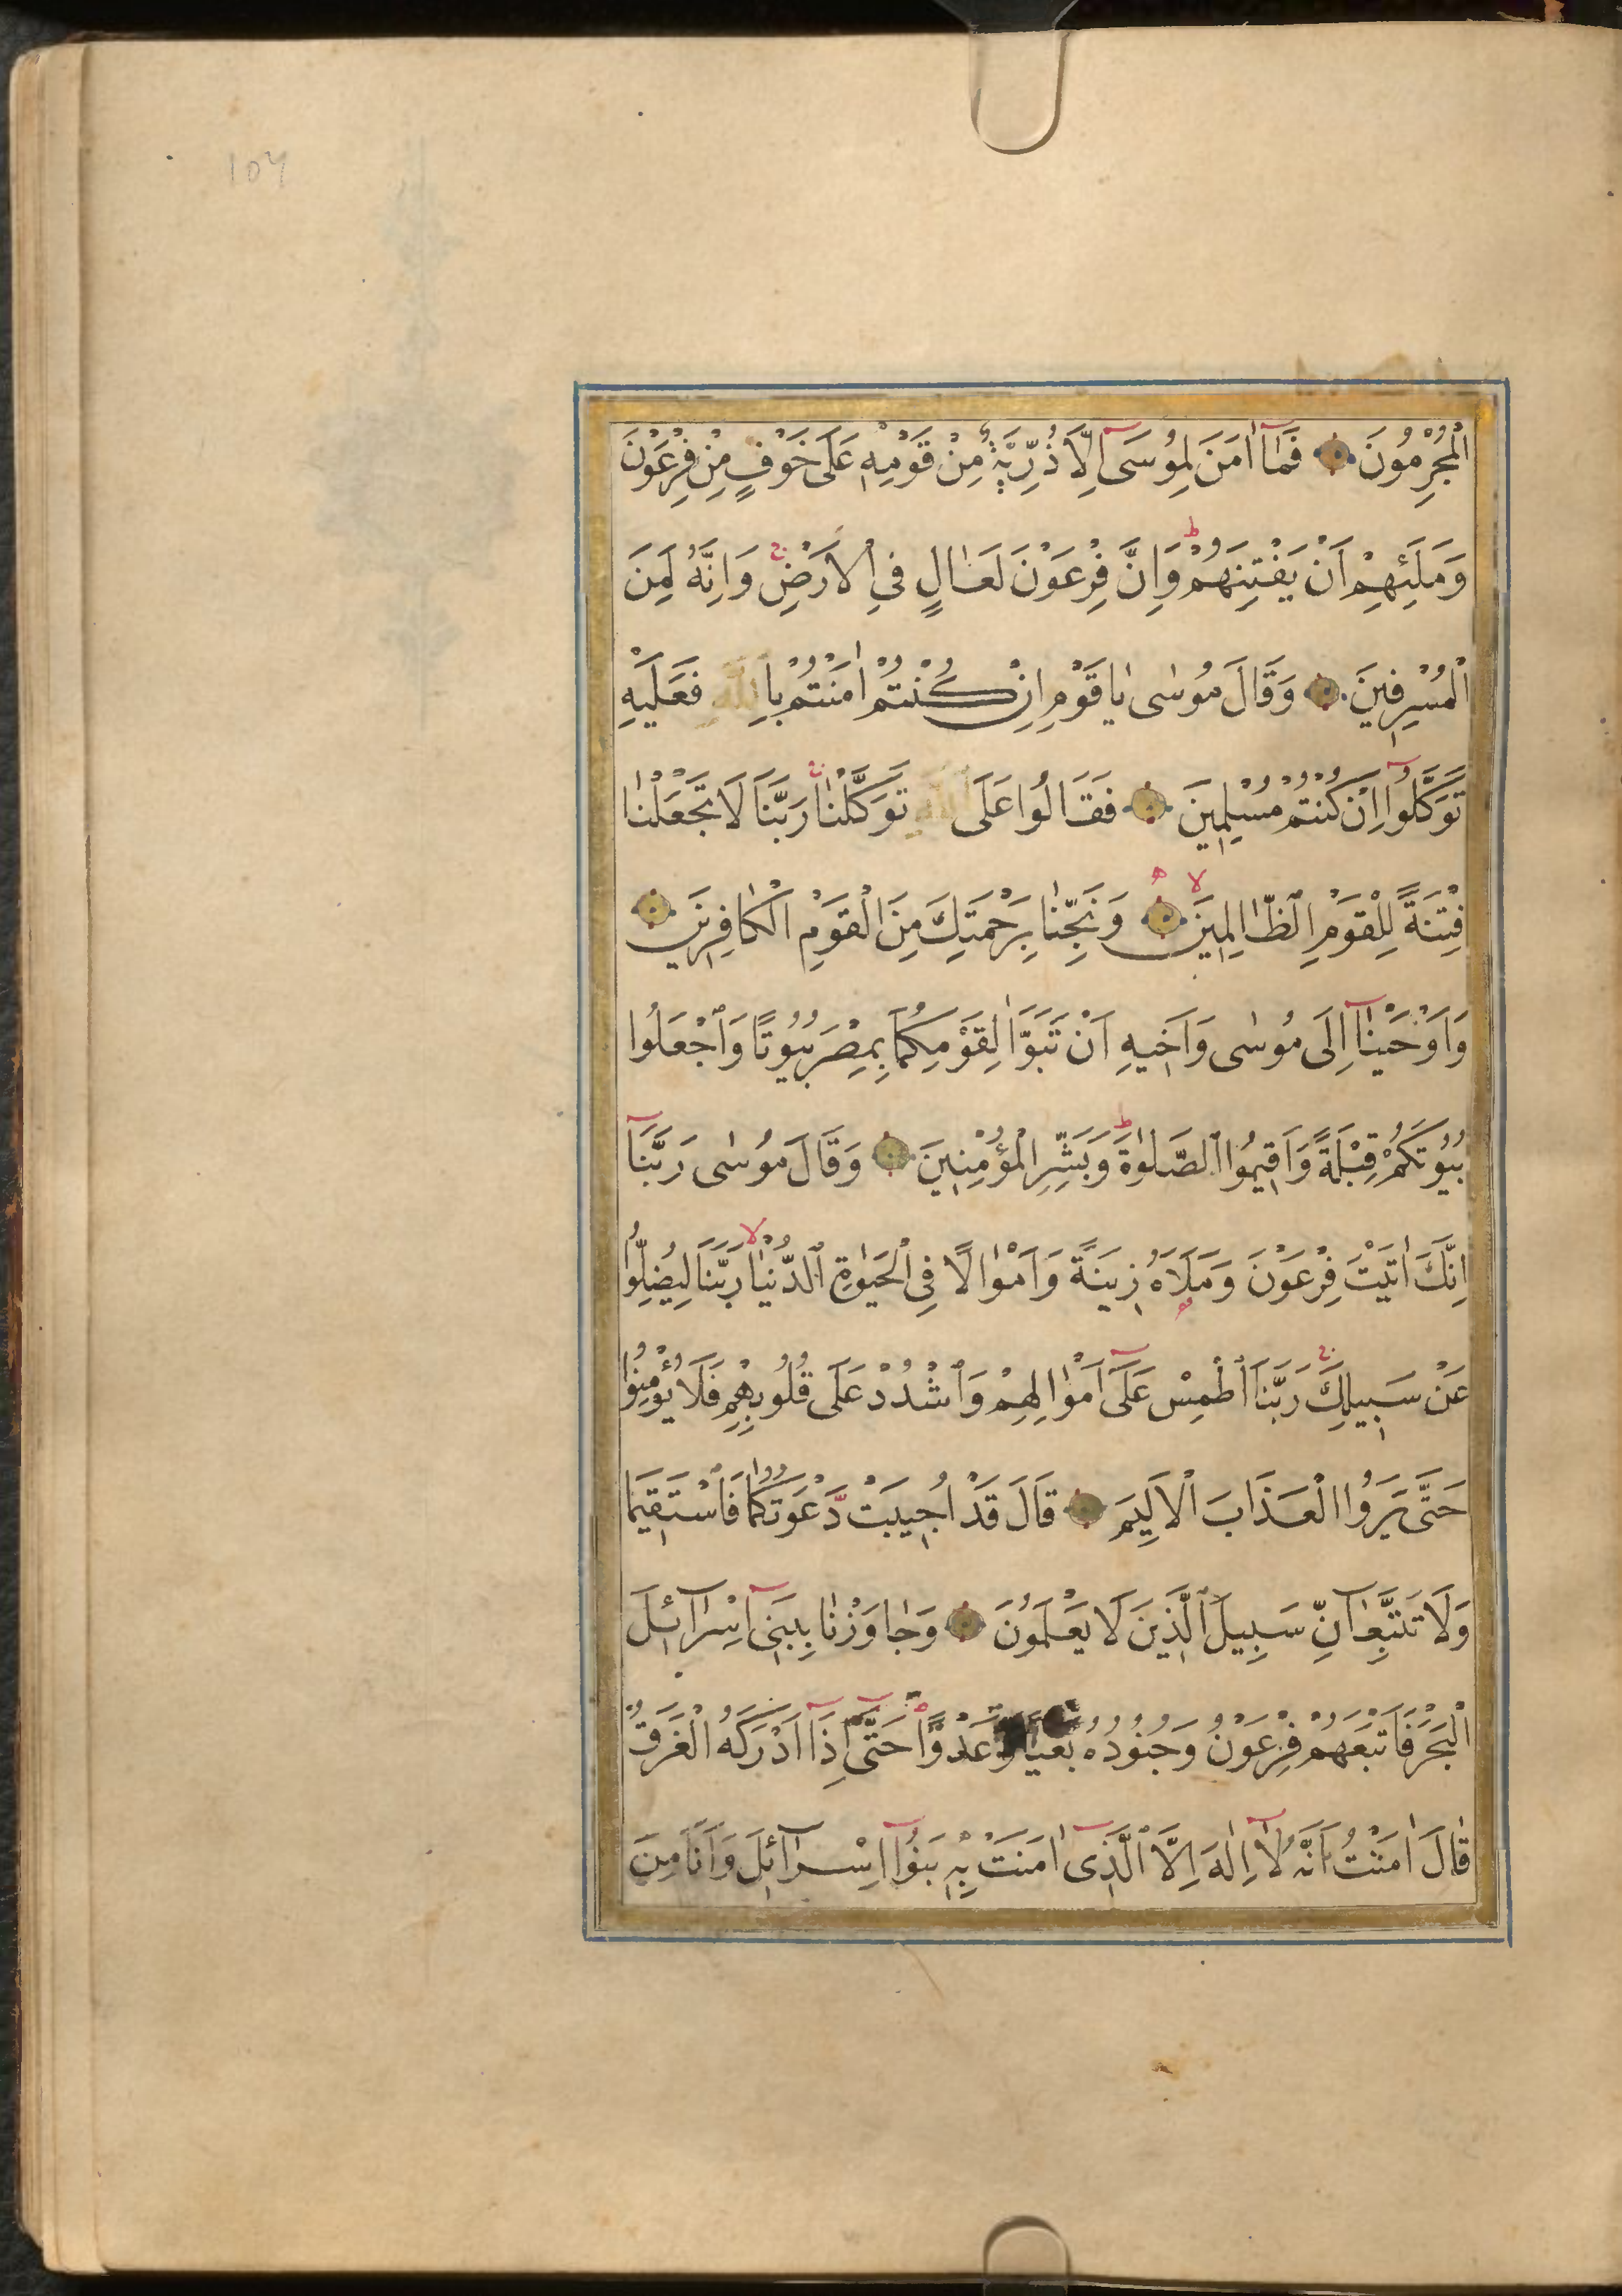 107
الْمُجْرِمُونَ فَمَآ اٰمَنَ لِمُوسَىٓ اِلَّا ذُرِّيَّةٌ مِنْ قَوْمِهٖ عَلٰى خَوْفٍ مِنْ فِرْعَوْنَ
وَمَلَئِهِمْ اَنْ يَفْتِنَهُمْ ط وَاِنَّ فِرْعَوْنَ لَعَالٍ فِي الْاَرْضِ ج وَاِنَّهُ لَمِنَ
الْمُسْرِفِينَ وَقَالَ مُوسٰى يَاقَوْمِ اِنْ كُنْتُمْ اٰمَنْتُمْ بِاللّٰهِ فَعَلَيْهِ
تَوَكَّلُوٓا اِنْ كُنْتُمْ مُسْلِمِينَ فَقَالُوا عَلَى اللّٰهِ تَوَكَّلْنَا ج رَبَّنَا لَا تَجْعَلْنَا
فِتْنَةً لِلْقَوْمِ الظَّالِمِينَ لا وَنَجِّنَا بِرَحْمَتِكَ مِنَ الْقَوْمِ الْكَافِرِينَ
وَاَوْحَيْنَآ اِلٰى مُوسٰى وَاَخِيهِ اَنْ تَبَوَّاٰ لِقَوْمِكُمَا بِمِصْرَ بُيُوتًا وَاجْعَلُوا
بُيُوتَكُمْ قِبْلَةً وَاَقِيمُوا الصَّلٰوةَ ط وَبَشِّرِ الْمُؤْمِنِينَ وَقَالَ مُوسٰى رَبَّنَآ
اِنَّكَ اٰتَيْتَ فِرْعَوْنَ وَمَلَاَهُ زِينَةً وَاَمْوَالًا فِي الْحَيٰوةِ الدُّنْيَا لا رَبَّنَا لِيُضِلُّوا
عَنْ سَبِيلِكَ ج رَبَّنَا اطْمِسْ عَلَىٓ اَمْوَالِهِمْ وَاشْدُدْ عَلٰى قُلُوبِهِمْ فَلَا يُؤْمِنُوا
حَتّٰى يَرَوُا الْعَذَابَ الْاَلِيمَ قَالَ قَدْ اُجِيبَتْ دَّعْوَتُكُمَا فَاسْتَقِيمَا
وَلَا تَتَّبِعَآنِّ سَبِيلَ الَّذِينَ لَا يَعْلَمُونَ وَجَاوَزْنَا بِبَنِىٓ اِسْرَآئِلَ
الْبَحْرَ فَاَتْبَعَهُمْ فِرْعَوْنُ وَجُنُودُهُ بَغْيًا وَعَدْوًا حَتّٰىٓ اِذَآ اَدْرَكَهُ الْغَرَقُ
قَالَ اٰمَنْتُ اَنَّهُ لَآ اِلٰهَ اِلَّا الَّذِىٓ اٰمَنَتْ بِهٖ بَنُوٓا اِسْرَآئِلَ وَاَنَا مِنَ